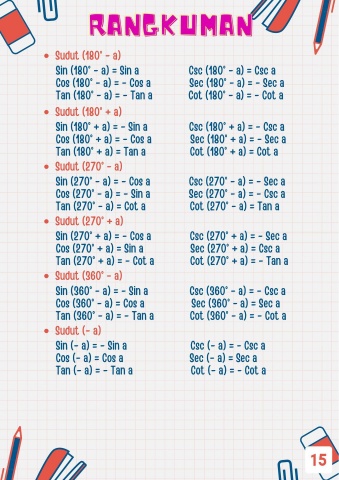 RANGKUMAN
• Sudut (180° - a)
Sin (180° - a) = Sin a Csc (180° - a) = Csc a
Cos (180° - a) = - Cos a Sec (180° - a) = - Sec a
Tan (180° - a) = - Tan a Cot (180° - a) = - Cot a
• Sudut (180° + a)
Sin (180° + a) = - Sin a Csc (180° + a) = - Csc a
Cos (180° + a) = - Cos a Sec (180° + a) = - Sec a
Tan (180° + a) = Tan a Cot (180° + a) = Cot a
• Sudut (270° - a)
Sin (270° - a) = - Cos a Csc (270° - a) = - Sec a
Cos (270° - a) = - Sin a Sec (270° - a) = - Csc a
Tan (270° - a) = Cot a Cot (270° - a) = Tan a
• Sudut (270° + a)
Sin (270° + a) = - Cos a Csc (270° + a) = - Sec a
Cos (270° + a) = Sin a Sec (270° + a) = Csc a
Tan (270° + a) = - Cot a Cot (270° + a) = - Tan a
• Sudut (360° - a)
Sin (360° - a) = - Sin a Csc (360° - a) = - Csc a
Cos (360° - a) = Cos a Sec (360° - a) = Sec a
Tan (360° - a) = - Tan a Cot (360° - a) = - Cot a
• Sudut (- a)
Sin (- a) = - Sin a Csc (- a) = - Csc a
Cos (- a) = Cos a Sec (- a) = Sec a
Tan (- a) = - Tan a Cot (- a) = - Cot a
15